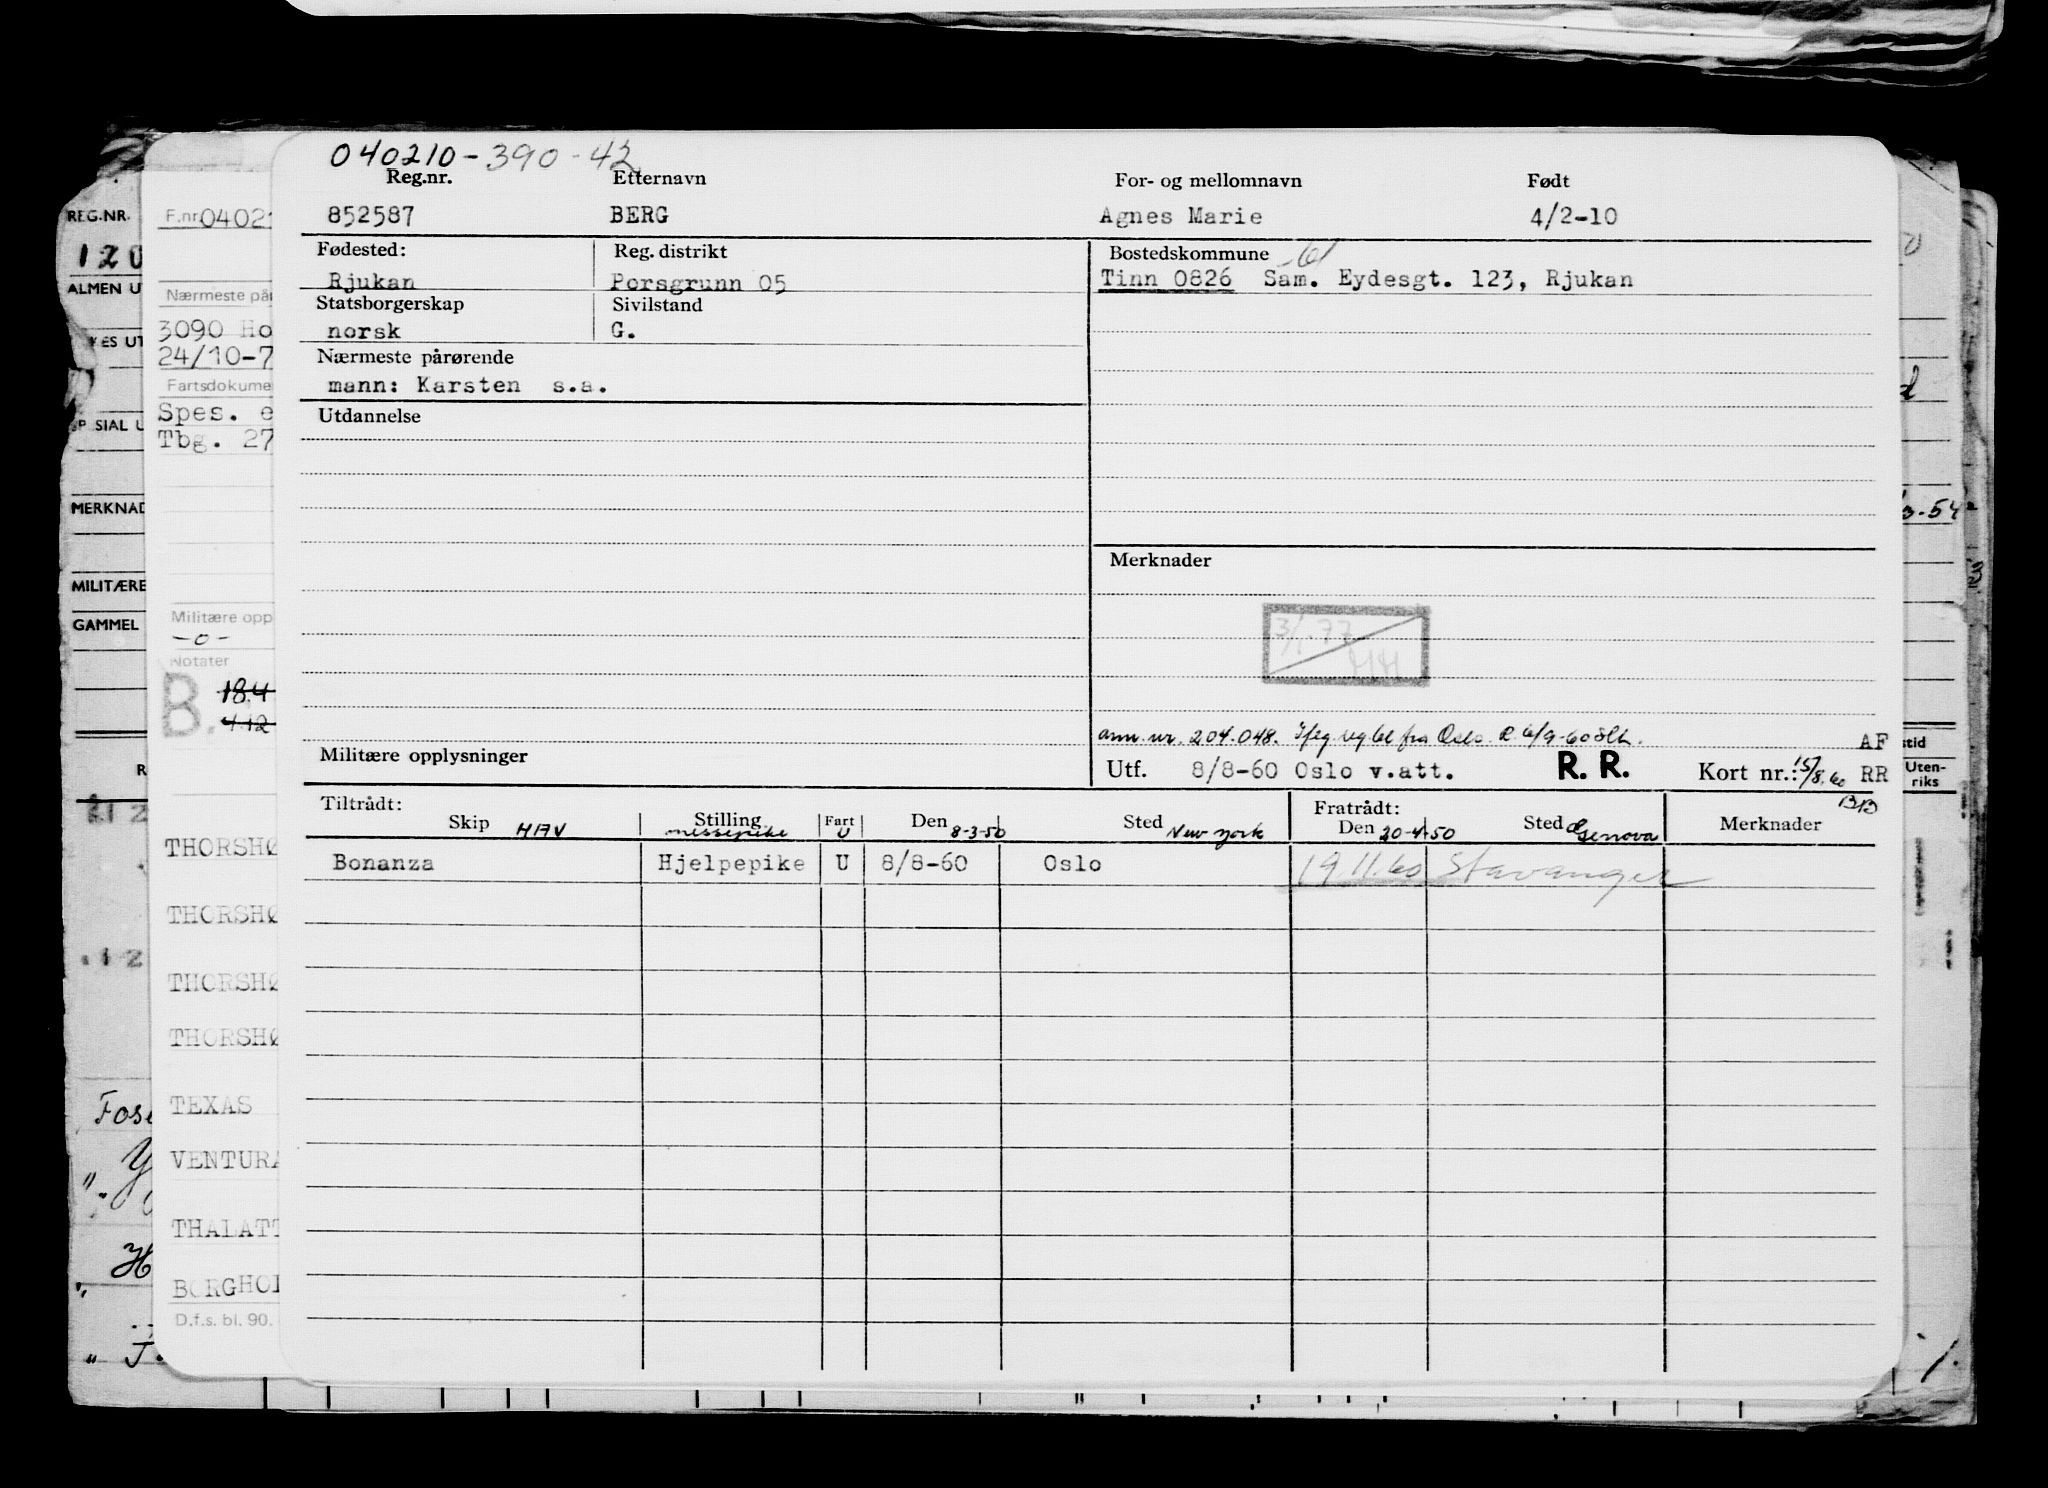 040210-390-42
Reg.nr. Etternavn For- og mellomnavn Født
852587 BERG Agnes Marie 4/2-10
Fødested: Reg. distrikt Bostedskommune
Rjukan Porsgrunn 05 Tinn 0826 Sam. Eydesgt. 123, Rjukan
Statsborgerskap Sivilstand
norsk G.
Nærmeste pårørende
mann: Karsten s.a.
Utdannelse
Merknader
3/1.77
ann. nr. 204.048. fra Oslo
Militære opplysninger
Utf. 8/8-60 Oslo v.att. R. R. Kort nr.: 15/8.60
AF
RR
Tiltrådt: Fratrådt:
Skip Stilling Fart Den Sted Den Sted Merknader
HAV messepike U 8-3-50 New York 20-4-50 Genova
Bonanza Hjelpepike U 8/8-60 Oslo 19.11.60 Stavanger
F.nr. 0402
Nærmeste pår
3090 Ho
24/10-7
Fartsdokume
Spes. e
Tbg. 27
Militære opp
-o-
Notater
B. 18.4
4.12
THORSHØ
THORSHØ
THORSHØ
THORSHØ
TEXAS
VENTURA
THALATT
BORGHOL
D.f.s. bl. 90.
REG.NR.
120
ALMEN U
KES UT
SIAL U
MERKNAD
MILITÆRE
GAMMEL
3-54
stid
Uten-
riks